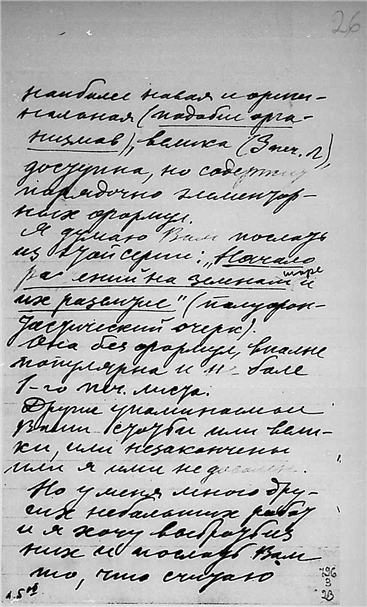 26
наиболее новая и ориги-
нальная (подобие орга-
низмов), велика (3 печ. л),
доступна, но содержит
порядочно элементар-
ных формул.
Я думаю Вам послать
из этой серии: "Начало
растений на земном шаре и
их развитие" (полуфан-
тастический очерк).
Она без формул, вполне
популярна и не более
1-го печ. листа.
Другие упоминаемые
Вами статьи или вели-
ки, или незакончены
или я ими не доволен.
Но у меня много дру-
гих небольших работ
и я хочу выбрать из
них и послать Вам
то, что считаю